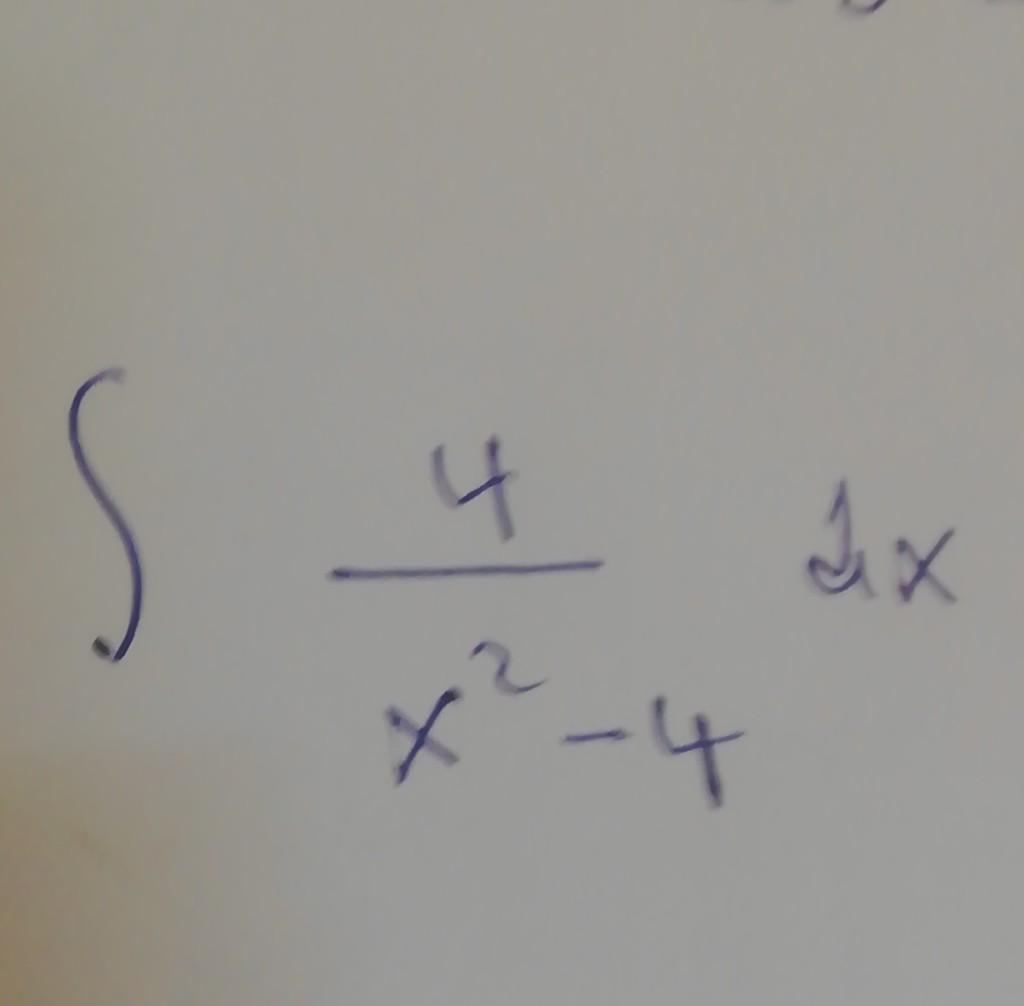 ∫ 4/(x² - 4) dx